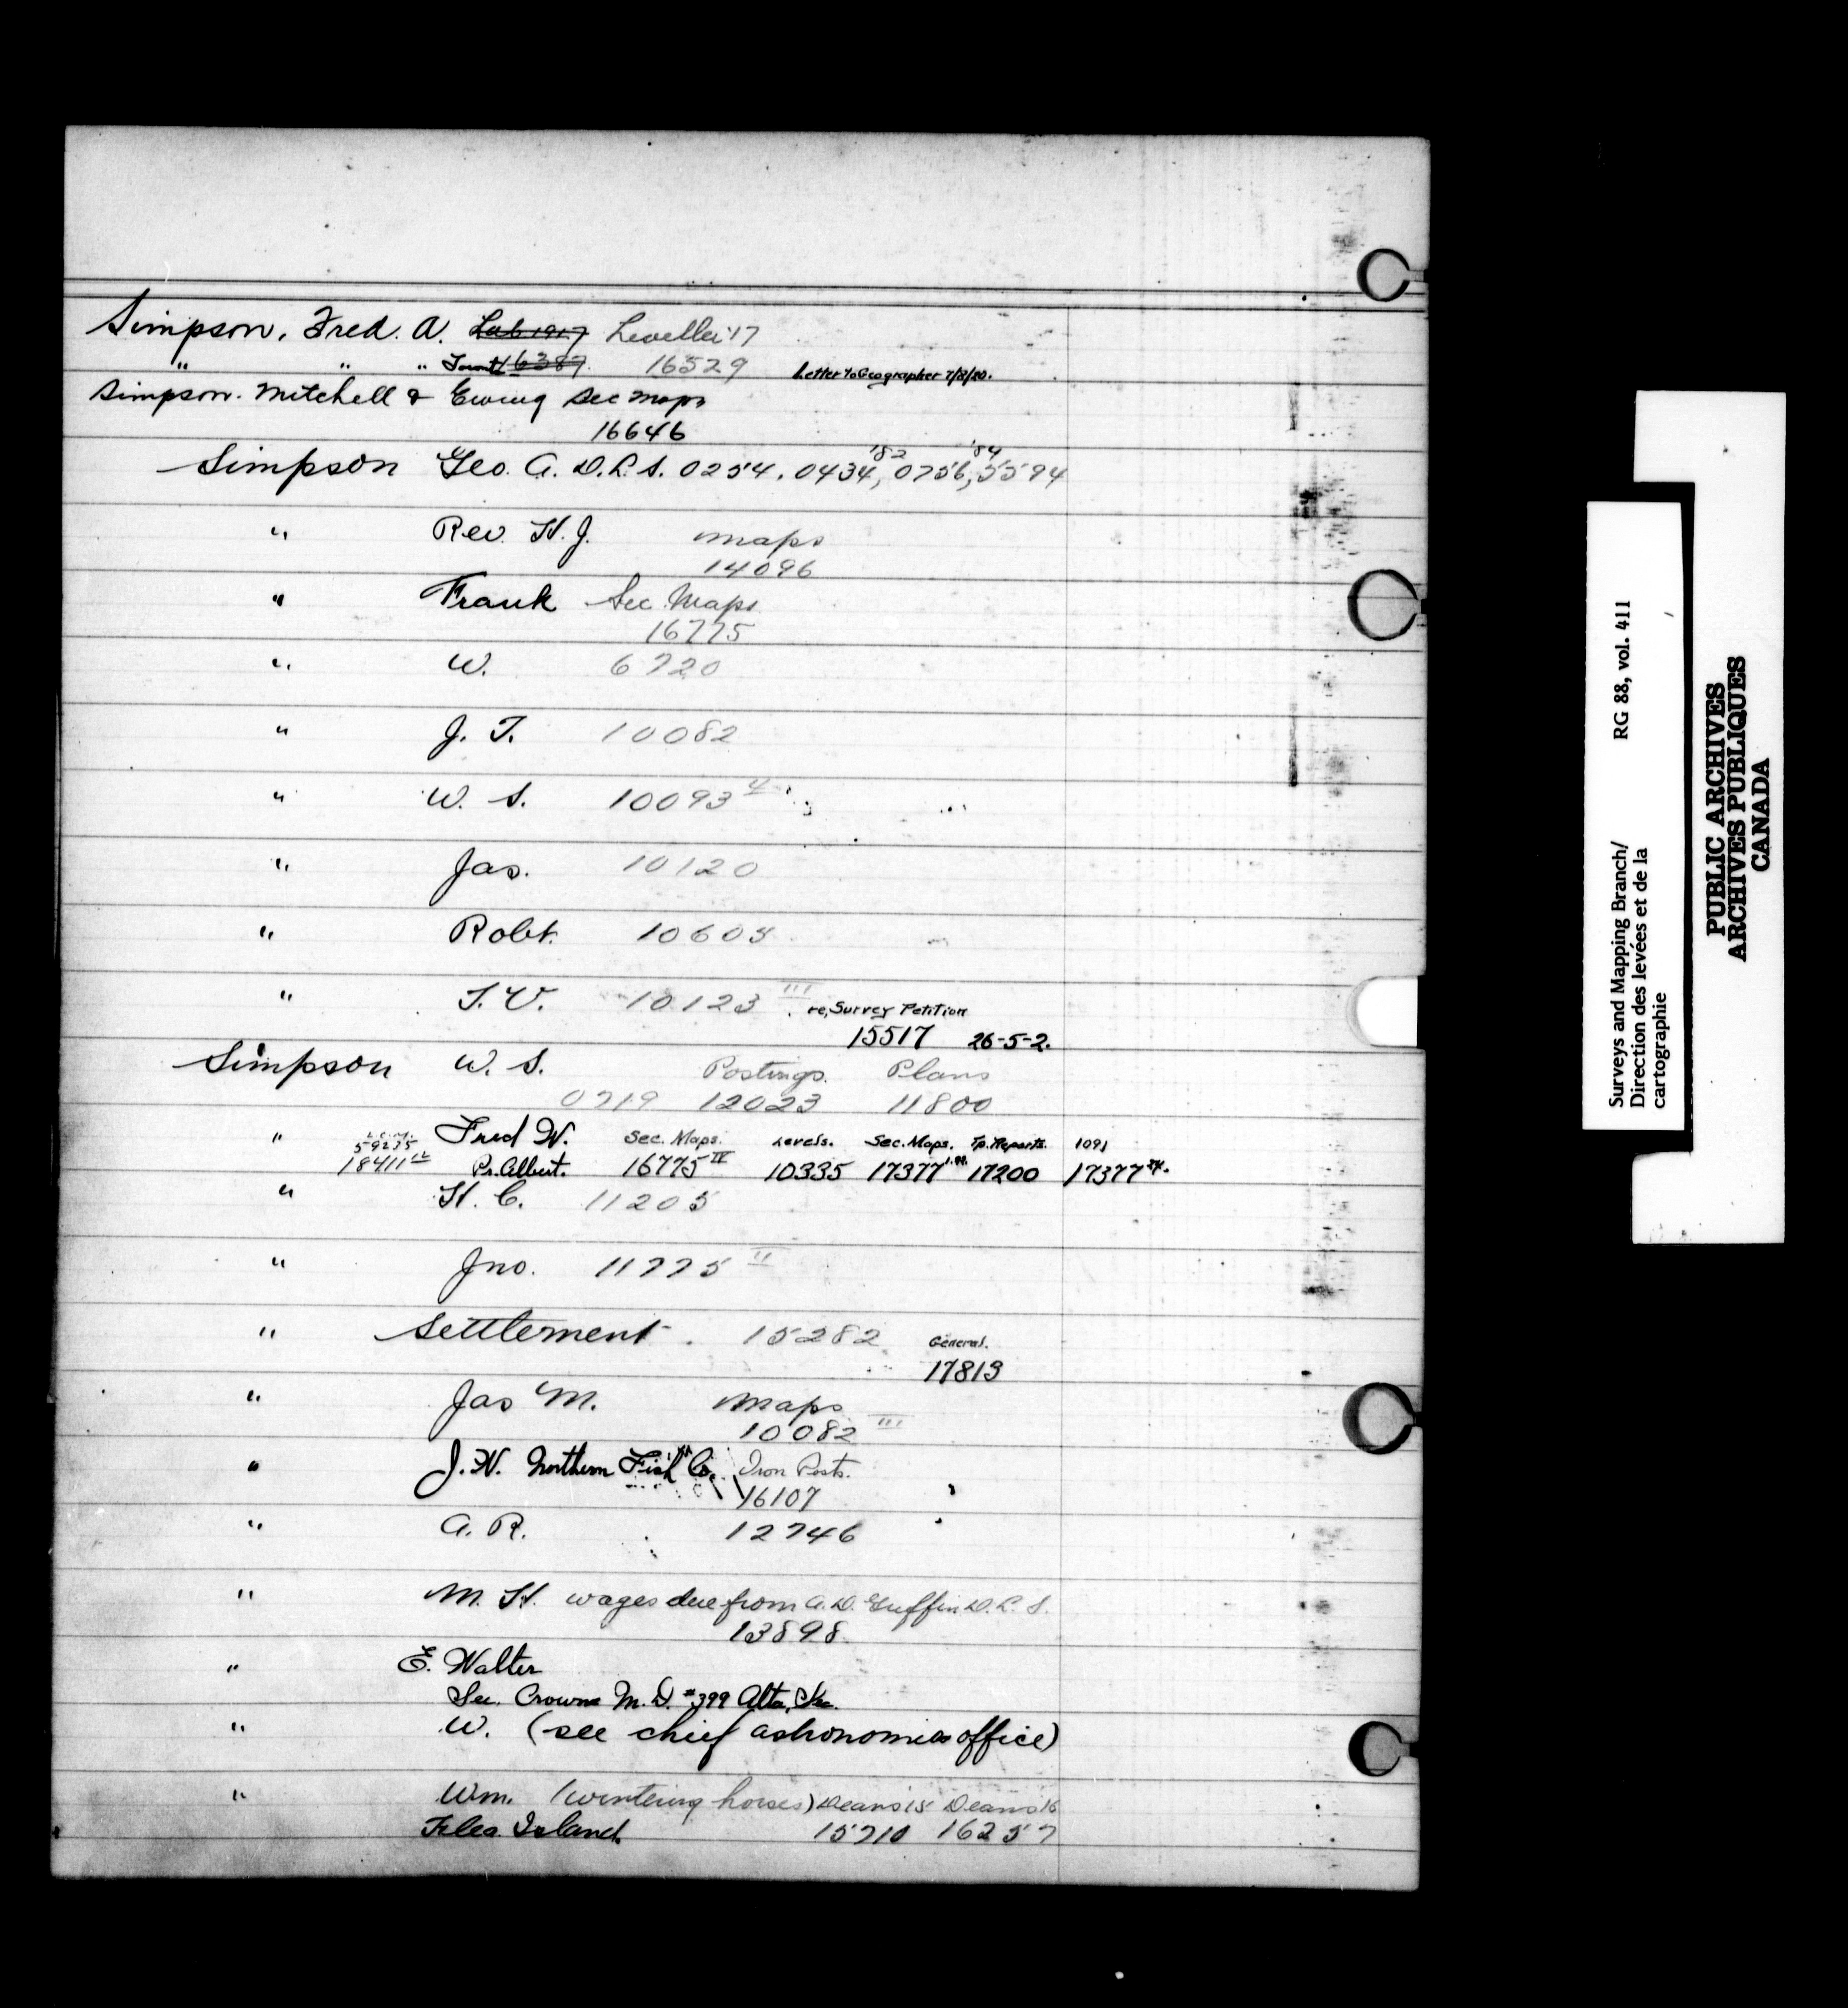 Simpson, Fred. A. Lab 1917 Leveller '17
" " " 16387 16529 Letter to Geographer 7/8/20.
Simpson. Mitchell & Ewing Sec Maps
16646
Simpson Geo. A. D.L.S. 0254, 0434, '82 0756, '84 5594
" Rev. H. J. maps
14096
" Frank Sec. Maps
16775
" W. 6720
" J. T. 10082
" W. S. 10093 4
" Jas. 10120
" Robt. 10605
" T. V. 10123 III re, Survey Petition
15517 26-5-2.
Simpson W. S. Postings. Plans
0719 12023 11800
" 59275 Fred W. Sec. Maps. Levels. Sec. Maps. Tp. Reports. 1091
18411 12 Pr. Albert. 16775 IV 10335 17377 17200 17377
" H. C. 11205
" Jno. 11775 II
" Settlement. 15282 General.
17813
" Jas M. Maps
10082 III
" J. W. Northern Fish Co. Iron Posts.
16107
" A. R. 12746
" M. H. wages due from A. D. Griffin D. L. S.
13898.
" E. Walter
See. Crowns M. D. #399 Alta,
" W. (see chief astronomers office)
" Wm. (wintering horses) Deans 15 Deans 16
Island 15710 16257
Surveys and Mapping Branch/ RG 88, vol. 411
Direction des levées et de la
cartographie
PUBLIC ARCHIVES
ARCHIVES PUBLIQUES
CANADA